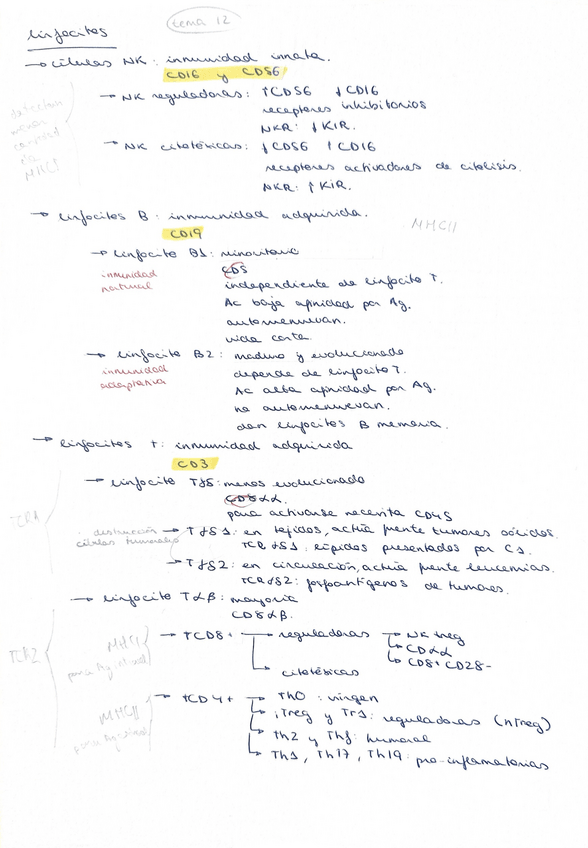 tema 12
linfocitos
→ células NK: inmunidad innata.
CD16 y CD56
→ NK reguladoras: ↑CD56 ↓CD16
receptores inhibitorios
NKR: ↓KIR.
→ NK citotóxicas: ↓CD56 ↑CD16
receptores activadores de citolisis.
NKR: ↑KIR.
detectan
menor
cantidad
de
MHCI
→ linfocitos B: inmunidad adquirida.
MHCII
CD19
→ linfocito B1: minoritario
inmunidad
natural
CD5
independiente de linfocito T.
Ac baja afinidad por Ag.
autorrenuevan.
vida corta.
→ linfocito B2: maduro y evolucionado
inmunidad
adaptativa
depende de linfocito T.
Ac alta afinidad por Ag.
no autorrenuevan.
dan linfocitos B memoria.
→ linfocitos T: inmunidad adquirida
CD3
TCR1
→ linfocito Tγδ: menos evolucionado
CD8αα.
para activarse necesita CD45
destrucción
células tumorales
→ Tγδ1: en tejidos, actúa frente tumores sólidos.
TCRγδ1: lípidos presentados por C1.
→ Tγδ2: en circulación, actúa frente leucemias.
TCRγδ2: fosfoantígenos de tumores.
→ linfocito Tαβ: mayoría
CD8αβ.
TCR2
MHCI
para Ag
→ TCD8+ → reguladoras → NK treg
→ CDαα
→ CD8+ CD28-
→ citotóxicas
MHCII
para Ag
→ TCD4+ → Th0: virgen
→ iTreg y Tr1: reguladoras (nTreg)
→ Th2 y Thf: humoral
→ Th1, Th17, Th19: pro-inflamatorias